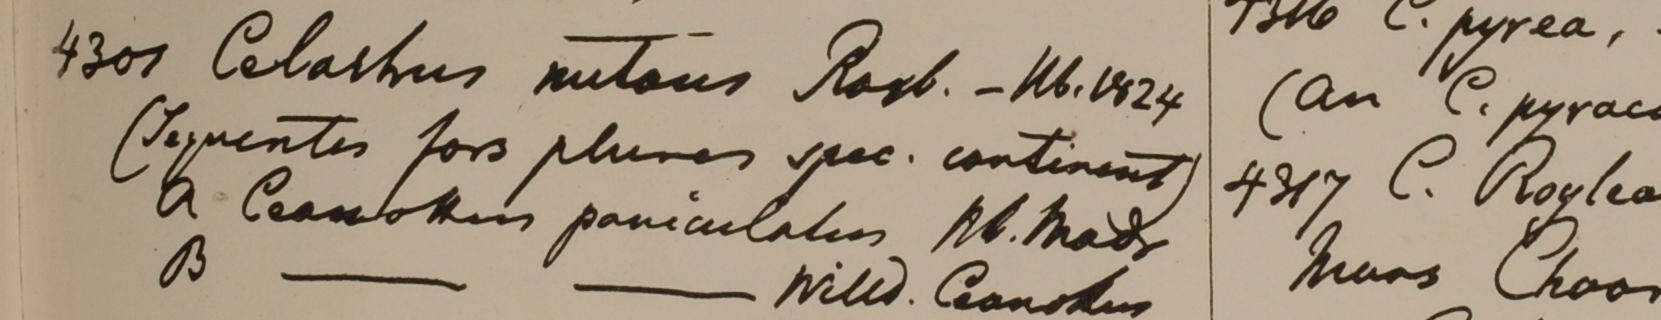 4301 Celastrus nutans Roxb. – Hb. 1824
(Sequentes fors plures spec. continent)
A Ceanothus paniculatus Hb. Madr
B ——— ——— Willd. Ceanothus
4316 C. pyrea,
(an C. pyrac
4317 C. Roylea
Mons Choor